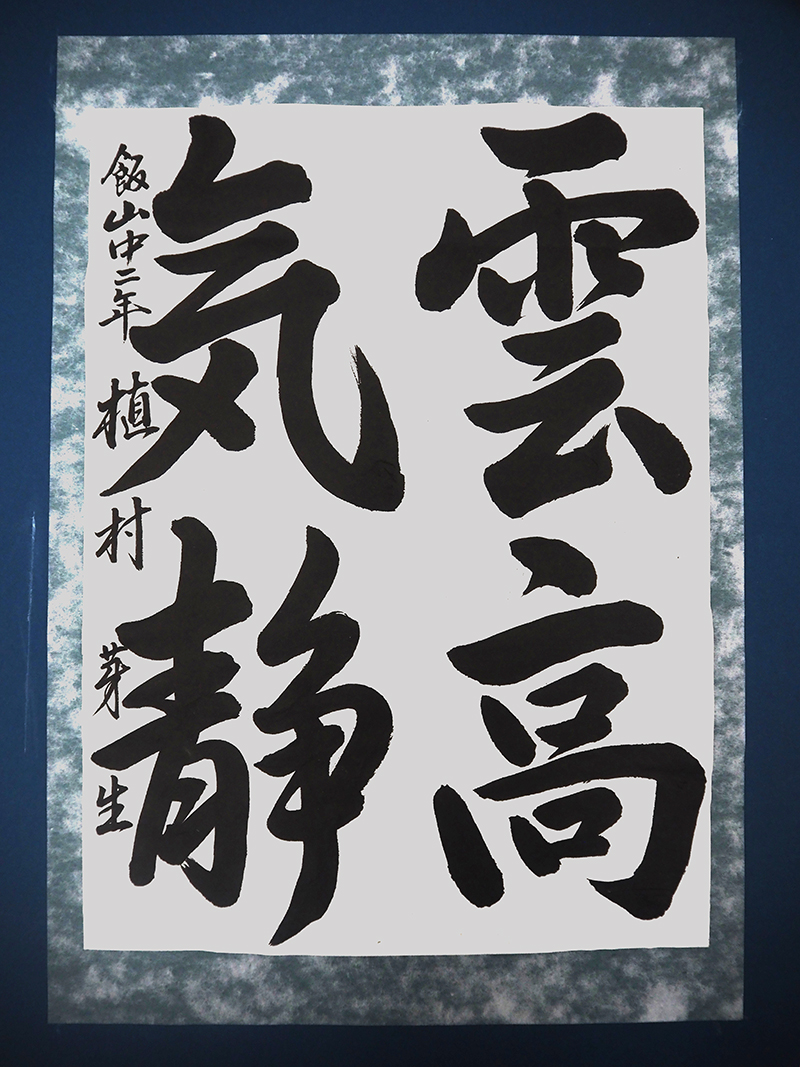 雲高
気静
飯山中二年 植村 芽生